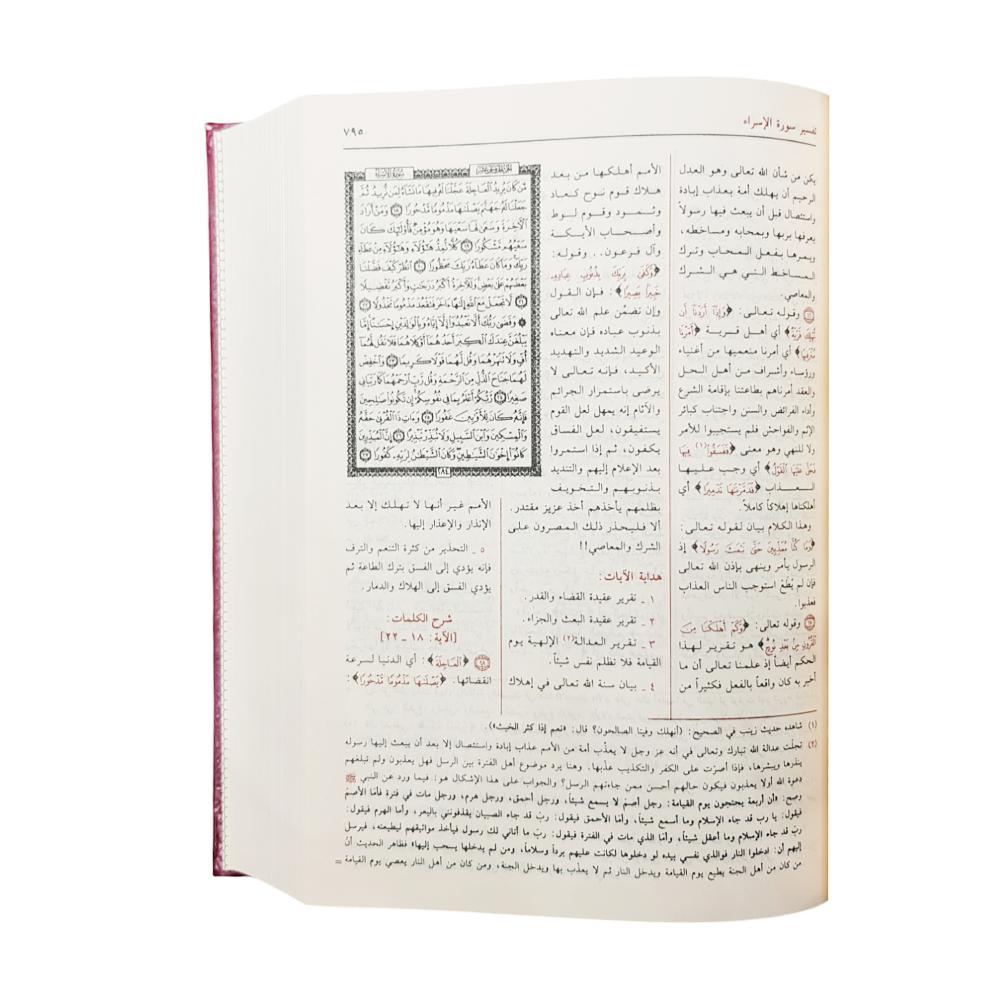 تفسير سورة الإسراء
٧٩٥
يكن من شأن الله تعالى وهو العدل
الرحيم أن يهلك أمة بعذاب إبادة
واستئصال قبل أن يبعث فيها رسولاً
يعرفها بربها وبمحابه ومساخطه،
ويمرها بفعل المحاب وترك
المساخط التي هي الشرك
والمعاصي.
وقوله تعالى: ﴿وَإِذَا أَرَدْنَا أَن
نُّهْلِكَ قَرْيَةً﴾ أي أهل قرية ﴿أَمَرْنَا
مُتْرَفِيهَا﴾ أي أمرنا منعميها من أغنياء
ورؤساء وأشراف من أهل الحل
والعقد أمرناهم بطاعتنا بإقامة الشرع
وأداء الفرائض والسنن واجتناب كبائر
الإثم والفواحش فلم يستجيبوا للأمر
ولا للنهي وهو معنى ﴿فَفَسَقُوا(١) فِيهَا
فَحَقَّ عَلَيْهَا الْقَوْلُ﴾ أي وجب عليها
العذاب ﴿فَدَمَّرْنَاهَا تَدْمِيرًا﴾ أي
أهلكناها إهلاكاً كاملاً.
وهذا الكلام بيان لقوله تعالى:
﴿وَمَا كُنَّا مُعَذِّبِينَ حَتَّىٰ نَبْعَثَ رَسُولًا﴾ إذ
الرسول يأمر وينهى بإذن الله تعالى
فإن لم يُطَعْ استوجب الناس العذاب
فعذبوا.
وقوله تعالى: ﴿وَكَمْ أَهْلَكْنَا مِنَ
الْقُرُونِ مِنْ بَعْدِ نُوحٍ﴾ هو تقرير لهذا
الحكم أيضاً إذ علمنا تعالى أن ما
أخبر به كان واقعاً بالفعل فكثيراً من
الأمم أهلكها من بعد
هلاك قوم نوح كعاد
وثمود وقوم لوط
وأصحاب الأيكة
وآل فرعون.. وقوله:
﴿وَكَفَىٰ بِرَبِّكَ بِذُنُوبِ عِبَادِهِ
خَبِيرًا بَصِيرًا﴾: فإن القول
وإن تضمّن علم الله تعالى
بذنوب عباده فإن معناه
الوعيد الشديد والتهديد
الأكيد، فإنه تعالى لا
يرضى باستمرار الجرائم
والآثام إنه يمهل لعل القوم
يستفيقون، لعل الفساق
يكفون، ثم إذا استمروا
بعد الإعلام إليهم والتنديد
بذنوبهم والتخويف
بظلمهم يأخذهم أخذ عزيز مقتدر.
ألا فليحذر ذلك المصرون على
الشرك والمعاصي!!
هداية الآيات:
١ ـ تقرير عقيدة القضاء والقدر.
٢ ـ تقرير عقيدة البعث والجزاء.
٣ ـ تقرير العدالة(٢) الإلهية يوم
القيامة فلا تظلم نفس شيئاً.
٤ ـ بيان سنة الله تعالى في إهلاك
سورة الإسراء
مَّن كَانَ يُرِيدُ الْعَاجِلَةَ عَجَّلْنَا لَهُ فِيهَا مَا نَشَاءُ لِمَن نُّرِيدُ ثُمَّ
جَعَلْنَا لَهُ جَهَنَّمَ يَصْلَاهَا مَذْمُومًا مَّدْحُورًا ١٨ وَمَنْ أَرَادَ
الْآخِرَةَ وَسَعَىٰ لَهَا سَعْيَهَا وَهُوَ مُؤْمِنٌ فَأُولَٰئِكَ كَانَ
سَعْيُهُم مَّشْكُورًا ١٩ كُلًّا نُّمِدُّ هَٰؤُلَاءِ وَهَٰؤُلَاءِ مِنْ عَطَاءِ
رَبِّكَ وَمَا كَانَ عَطَاءُ رَبِّكَ مَحْظُورًا ٢٠ انظُرْ كَيْفَ فَضَّلْنَا
بَعْضَهُمْ عَلَىٰ بَعْضٍ وَلَلْآخِرَةُ أَكْبَرُ دَرَجَاتٍ وَأَكْبَرُ تَفْضِيلًا
٢١ لَّا تَجْعَلْ مَعَ اللَّهِ إِلَٰهًا آخَرَ فَتَقْعُدَ مَذْمُومًا مَّخْذُولًا ٢٢
۞ وَقَضَىٰ رَبُّكَ أَلَّا تَعْبُدُوا إِلَّا إِيَّاهُ وَبِالْوَالِدَيْنِ إِحْسَانًا إِمَّا
يَبْلُغَنَّ عِندَكَ الْكِبَرَ أَحَدُهُمَا أَوْ كِلَاهُمَا فَلَا تَقُل لَّهُمَا
أُفٍّ وَلَا تَنْهَرْهُمَا وَقُل لَّهُمَا قَوْلًا كَرِيمًا ٢٣ وَاخْفِضْ
لَهُمَا جَنَاحَ الذُّلِّ مِنَ الرَّحْمَةِ وَقُل رَّبِّ ارْحَمْهُمَا كَمَا رَبَّيَانِي
صَغِيرًا ٢٤ رَّبُّكُمْ أَعْلَمُ بِمَا فِي نُفُوسِكُمْ إِن تَكُونُوا صَالِحِينَ
فَإِنَّهُ كَانَ لِلْأَوَّابِينَ غَفُورًا ٢٥ وَآتِ ذَا الْقُرْبَىٰ حَقَّهُ
وَالْمِسْكِينَ وَابْنَ السَّبِيلِ وَلَا تُبَذِّرْ تَبْذِيرًا ٢٦ إِنَّ الْمُبَذِّرِينَ
كَانُوا إِخْوَانَ الشَّيَاطِينِ وَكَانَ الشَّيْطَانُ لِرَبِّهِ كَفُورًا ٢٧
٢٨٤
الأمم غير أنها لا تهلك إلا بعد
الإنذار والإعذار إليها.
٥ ـ التحذير من كثرة التنعم والترف
فإنه يؤدي إلى الفسق بترك الطاعة ثم
يؤدي الفسق إلى الهلاك والدمار.
شرح الكلمات:
[الآية: ١٨ ـ ٢٢]
١٨ ﴿الْعَاجِلَةَ﴾: أي الدنيا لسرعة
انقضائها. ﴿يَصْلَاهَا مَذْمُومًا مَّدْحُورًا﴾:
(١) شاهده حديث زينب في الصحيح: (أنهلك وفينا الصالحون؟ قال: «نعم إذا كثر الخبث»).
(٢) تجلّت عدالة الله تبارك وتعالى في أنه عز وجل لا يعذّب أمة من الأمم عذاب إبادة واستئصال إلا بعد أن يبعث إليها رسوله
ينذرها ويبشرها، فإذا أصرّت على الكفر والتكذيب عذّبها. وهنا يرد موضوع أهل الفترة بين الرسل فهل يعذبون ولم تبلغهم
دعوة الله أولا يعذبون فيكون حالهم أحسن ممن جاءتهم الرسل؟ والجواب على هذا الإشكال هو: فيما ورد عن النبي ﷺ
وصح: «أن أربعة يحتجون يوم القيامة: رجل أصمّ لا يسمع شيئاً، ورجل أحمق، ورجل هرم، ورجل مات في فترة فأمّا الأصمّ
فيقول: يا رب قد جاء الإسلام وما أسمع شيئاً، وأمّا الأحمق فيقول: ربّ قد جاء الصبيان يقذفونني بالبعر، وأما الهرم فيقول:
ربّ قد جاء الإسلام وما أعقل شيئاً، وأمّا الذي مات في الفترة فيقول: ربّ ما أتاني لك رسول فيأخذ مواثيقهم ليطيعنه، فيرسل
إليهم أن: ادخلوا النار فوالذي نفسي بيده لو دخلوها لكانت عليهم برداً وسلاماً، ومن لم يدخلها يسحب إليها» فظاهر الحديث أنّ
من كان من أهل الجنة يطيع يوم القيامة ويدخل النار ثم لا يعذب بها ويدخل الجنة، ومن كان من أهل النار يعصي يوم القيامة =